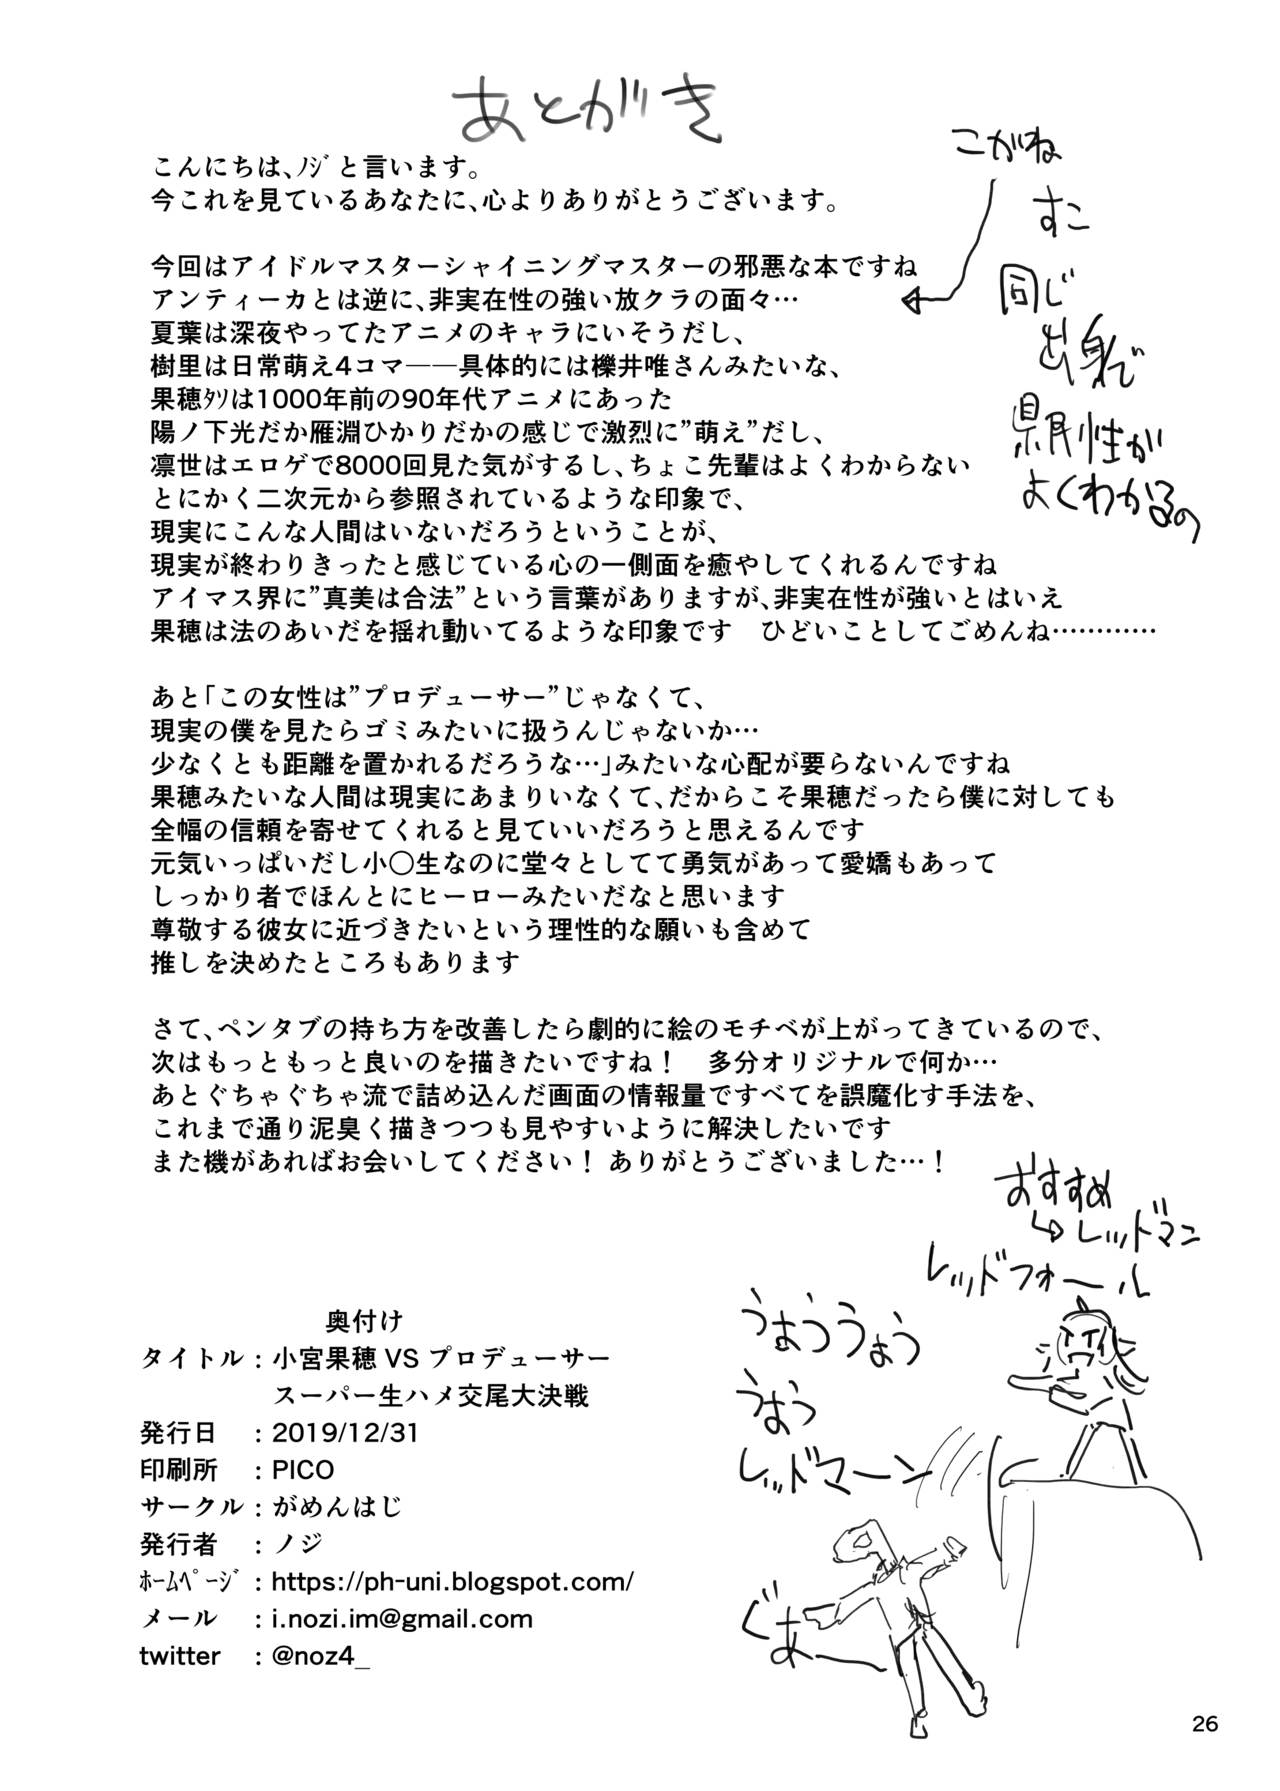 あとがき
こんにちは、ノジと言います。
今これを見ているあなたに、心よりありがとうございます。
こがね
すこ
同じ
出身で
県民性が
よくわかるの
今回はアイドルマスターシャイニングマスターの邪悪な本ですね
アンティーカとは逆に、非実在性の強い放クラの面々…
夏葉は深夜やってたアニメのキャラにいそうだし、
樹里は日常萌え4コマ――具体的には櫟井唯さんみたいな、
果穂ﾀｿは1000年前の90年代アニメにあった
陽ノ下光だか雁淵ひかりだかの感じで激烈に”萌え”だし、
凛世はエロゲで8000回見た気がするし、ちょこ先輩はよくわからない
とにかく二次元から参照されているような印象で、
現実にこんな人間はいないだろうということが、
現実が終わりきったと感じている心の一側面を癒やしてくれるんですね
アイマス界に”真美は合法”という言葉がありますが、非実在性が強いとはいえ
果穂は法のあいだを揺れ動いてるような印象です　ひどいことしてごめんね…………
あと「この女性は”プロデューサー”じゃなくて、
現実の僕を見たらゴミみたいに扱うんじゃないか…
少なくとも距離を置かれるだろうな…」みたいな心配が要らないんですね
果穂みたいな人間は現実にあまりいなくて、だからこそ果穂だったら僕に対しても
全幅の信頼を寄せてくれると見ていいだろうと思えるんです
元気いっぱいだし小〇生なのに堂々としてて勇気があって愛嬌もあって
しっかり者でほんとにヒーローみたいだなと思います
尊敬する彼女に近づきたいという理性的な願いも含めて
推しを決めたところもあります
さて、ペンタブの持ち方を改善したら劇的に絵のモチベが上がってきているので、
次はもっともっと良いのを描きたいですね！　多分オリジナルで何か…
あとぐちゃぐちゃ流で詰め込んだ画面の情報量ですべてを誤魔化す手法を、
これまで通り泥臭く描きつつも見やすいように解決したいです
また機があればお会いしてください！ ありがとうございました…！
おすすめ
レッドマン
レッドフォール
うおううおう
うおう
レッドマーン
ぐあー
奥付け
タイトル : 小宮果穂 VS プロデューサー
スーパー生ハメ交尾大決戦
発行日 : 2019/12/31
印刷所 : PICO
サークル : がめんはじ
発行者 : ノジ
ﾎｰﾑﾍﾟｰｼﾞ : https://ph-uni.blogspot.com/
メール : i.nozi.im@gmail.com
twitter : @noz4_
26